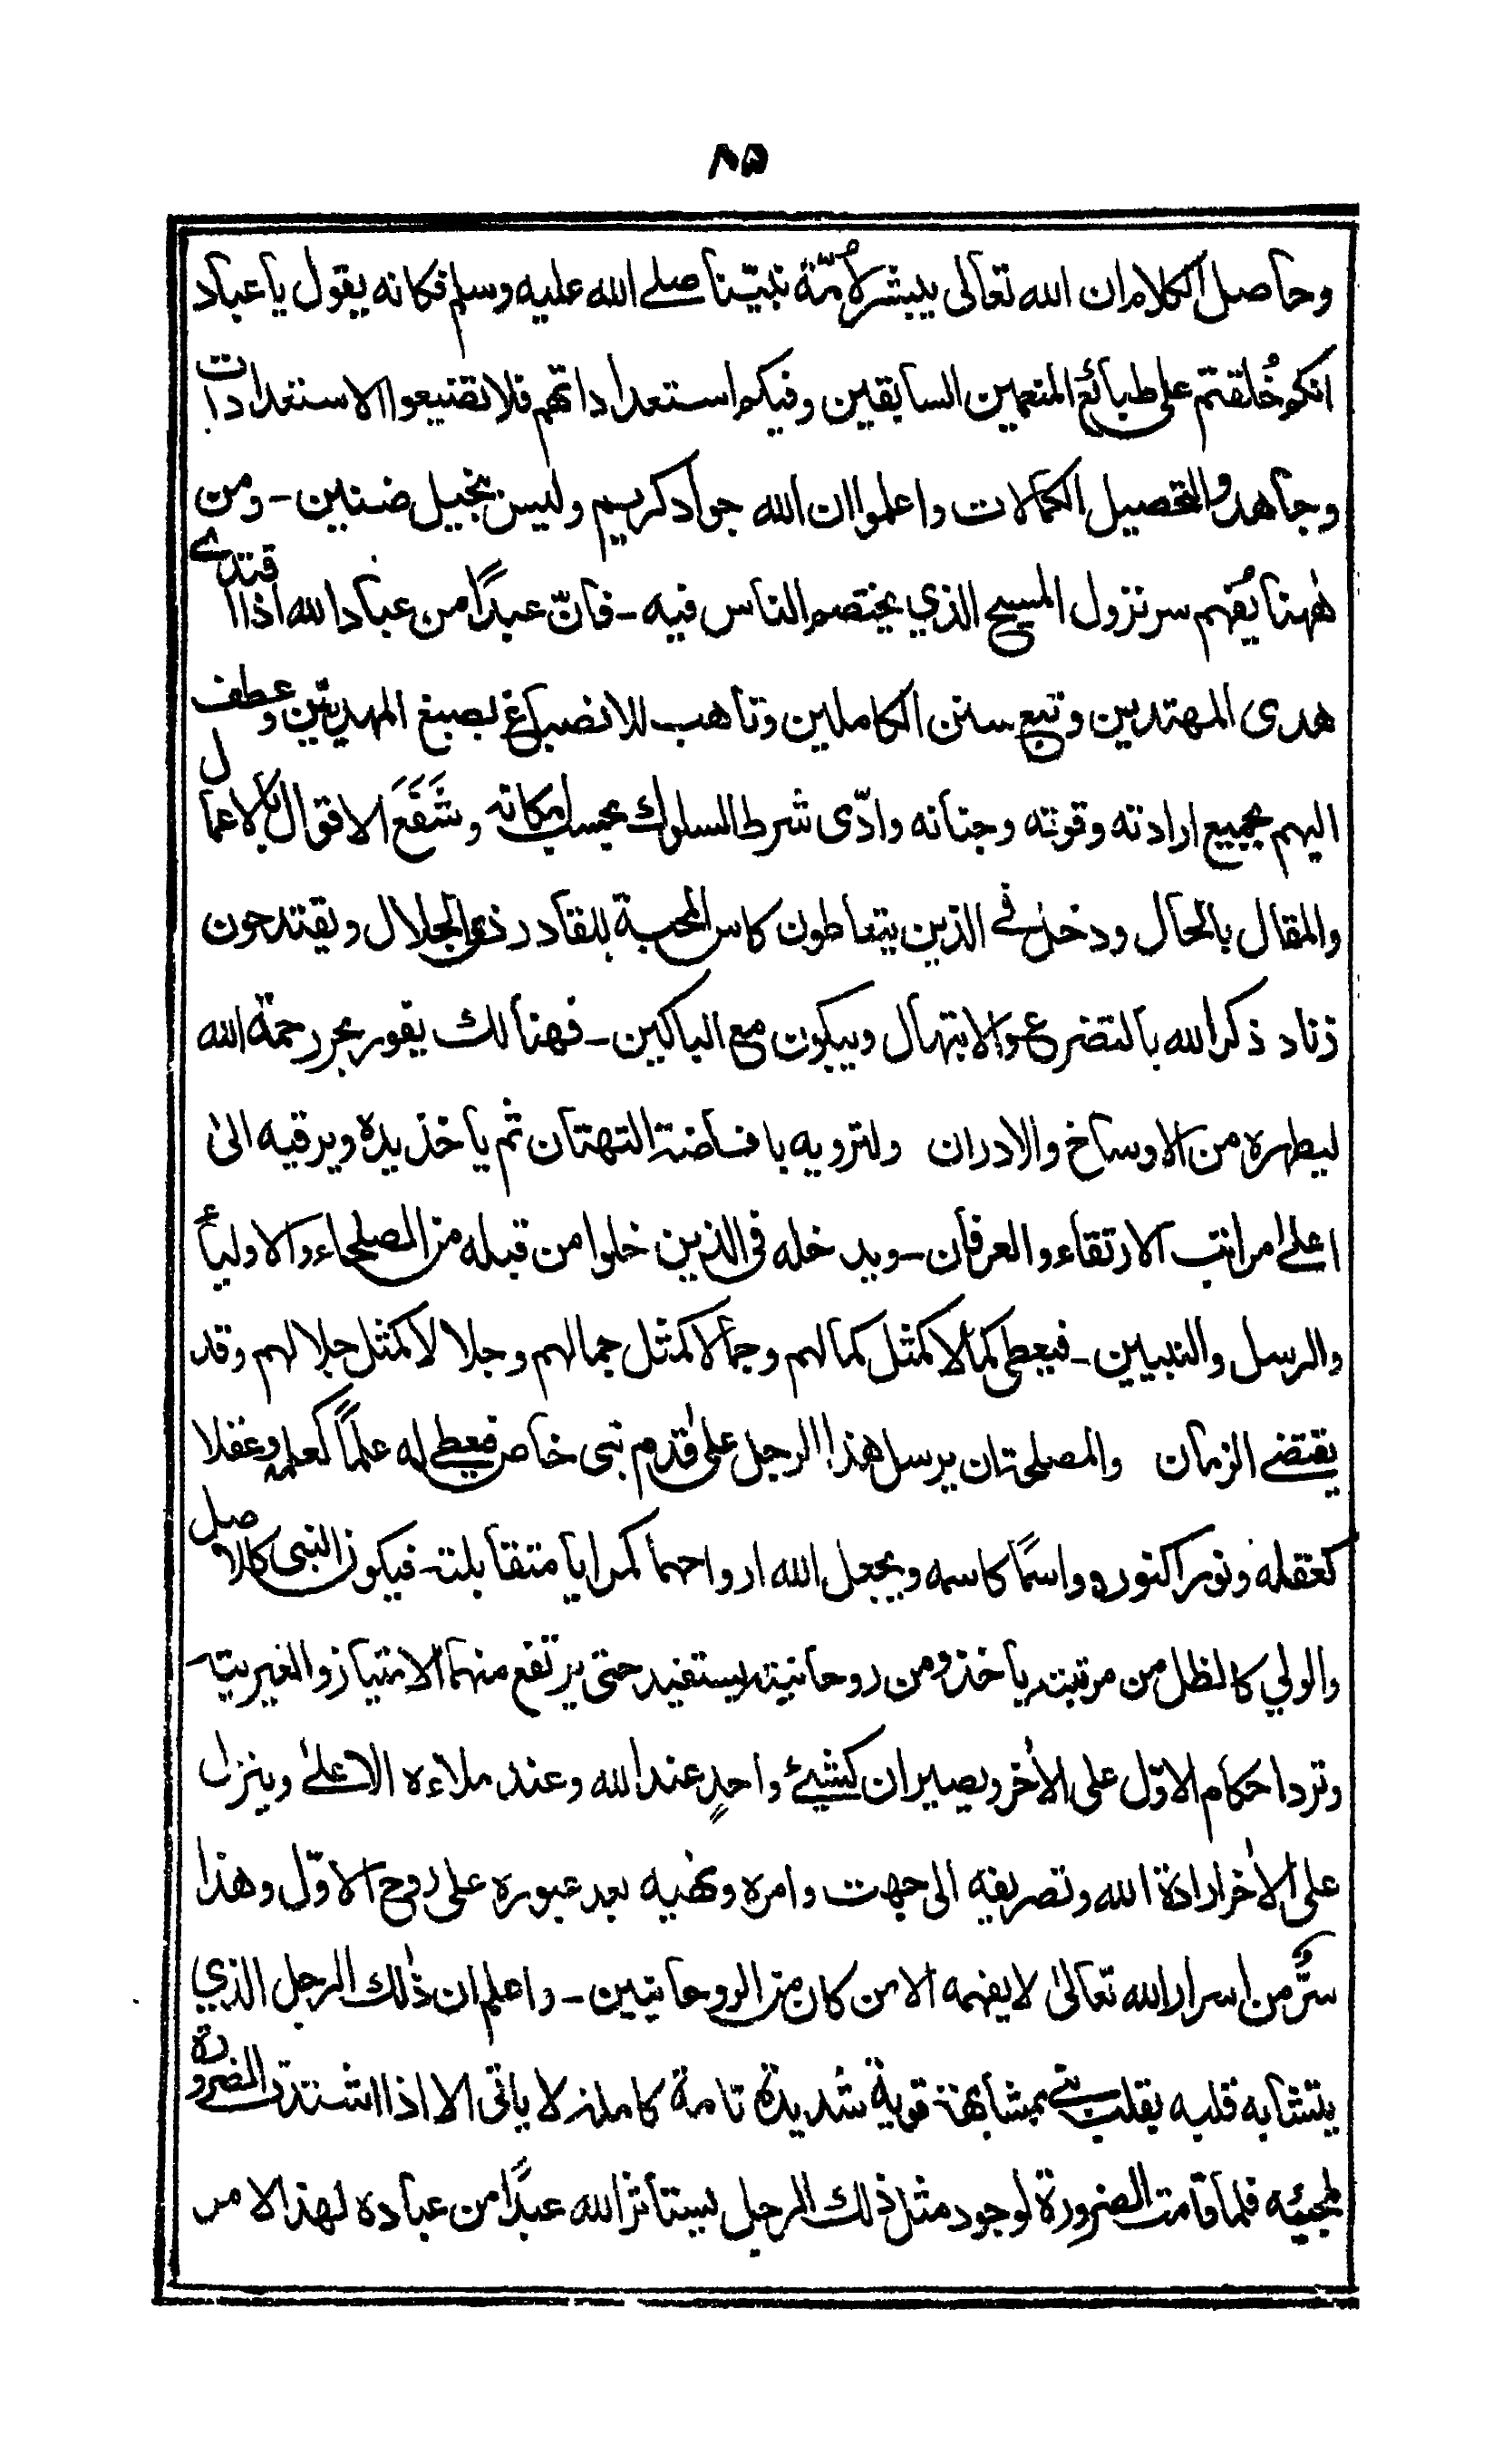 ٨٥
وحاصل الكلام ان الله تعالى يبشر لأُمّة نبيّنا صلے الله عليه وسلم فكانه يقول يا عباد
انكم خُلقتم على طبائع المنعمين السابقين وفيكم استعداداتهم فلا تضيعوا الاستعدادات
وجاهدوا لتحصيل الكمالات واعلموا ان الله جواد كريم وليس بخيل ضنين - ومن
هٰهنا يُفهم سر نزول المسيح الذي يختصم الناس فيه - فانّ عبدًا من عباد الله اذا اقتدے
هدى المهتدين وتبع سنن الكاملين وتأهب للانصباغ بصبغ المهديّين وعطف
اليهم بجميع ارادته وقوته وجنانه وادّى شرط السلوك بحسب امكانه وشَفَّعَ الاقوال بالاعمال
والمقال بالحال ودخل فے الذين يتعاطون كاس المحبة للقادر ذي الجلال ويقتدحون
زناد ذكر الله بالتضرع والابتهال ويبكون مع الباكين - فهنالك يفور بحر رحمة الله
ليطهره من الاوساخ والادران ولترويه بافاضة التهتان ثم يأخذ يده ويرقيه الىٰ
اعلےٰ مراتب الارتقاء والعرفان - ويدخله فى الذين خلوا من قبله من الصلحاء والاولياء
والرسل والنبيين - فيعطى كمالا كمثل كمالهم وجمالا كمثل جمالهم وجلالا كمثل جلالهم وقد
يقتضے الزمان والمصلحة ان يرسل هذا الرجل علىٰ قدم نبى خاص فيعطے له علمًا كعلمه وعقلا
كعقله ونورا كنوره واسمًا كاسمه ويجعل الله ارواحهما كمرايا متقابلة - فيكون النبى كالاصل
والولي كالظل من مرتبته يأخذ ومن روحانيته يستفيد حتى يرتفع منهما الامتياز والغيرية
وترد احكام الاوّل على الاٰخر ويصيران كشيئ واحدٍ عند الله وعند ملاءه الاعلےٰ وينزل
على الاٰخر ارادة الله وتصريفه الى جهت وامره ونهيه بعد عبوره على روح الاوّل وهذا
سرٌّ من اسرار الله تعالىٰ لا يفهمه الا من كان من الروحانيين - واعلم ان ذٰلك الرجل الذي
يتشابه قلبه بقلب نبے بمشابهة قوية شديدة تامة كاملة لا ياتى الا اذا اشتدت الضرورة
لمجيئه فلما قامت الضرورة لوجود مثل ذلك الرجل ليستأثر الله عبدًا من عباده لهذا الامر